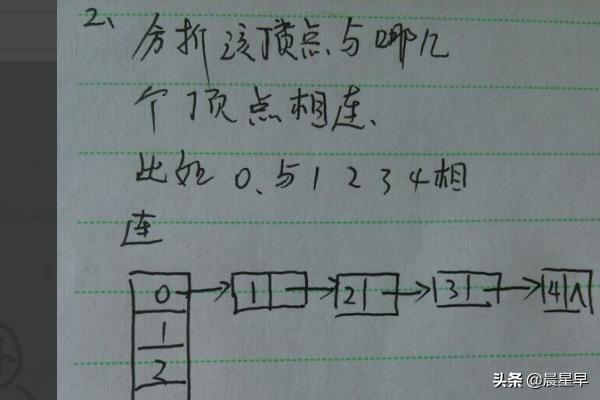 2、分析该顶点与哪几
个顶点相连、
比如 0、与 1 2 3 4 相
连
0 1 2 3 4 ∧
1
2
头条 @晨星早